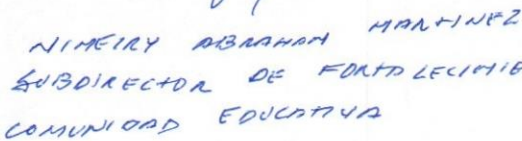 NIMEIRY ABRAHAM MARTINEZ
SUBDIRECTOR DE FORTALECIMIE
COMUNIDAD EDUCATIVA